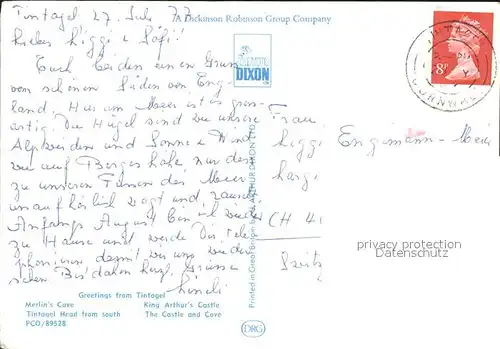 Tintagel 27. Juli 77
A Dickinson Robinson Group Company
Liebes Liggi + Söfi!
Euch beiden einen Gruss
von schönen Süden von Eng-
land. Hier am Meer ist es gross-
artig. Die Hügel sind wie unsere
Alpweiden und Sonne + Wind
wie auf Berges höhe, nur dass
zu unseren Füssen das Meer
unaufhörlich wogt und rauscht
Anfangs August bin ich wieder
zu Hause und werde Dir tele-
phonieren damit wir uns wieder
sehen Bis dahin herzl. Grüsse
DIXON
8P
Frau
Liggi Engimann-Meier
CH 41
privacy protection
Datenschutz
Printed in Great Britain by J. ARTHUR DIXON LTD
Greetings from Tintagel
Merlin's Cave King Arthur's Castle
Tintagel Head from south The Castle and Cove
PCO/89528
DRG